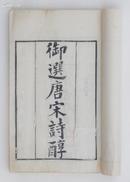 御選唐宋詩醇